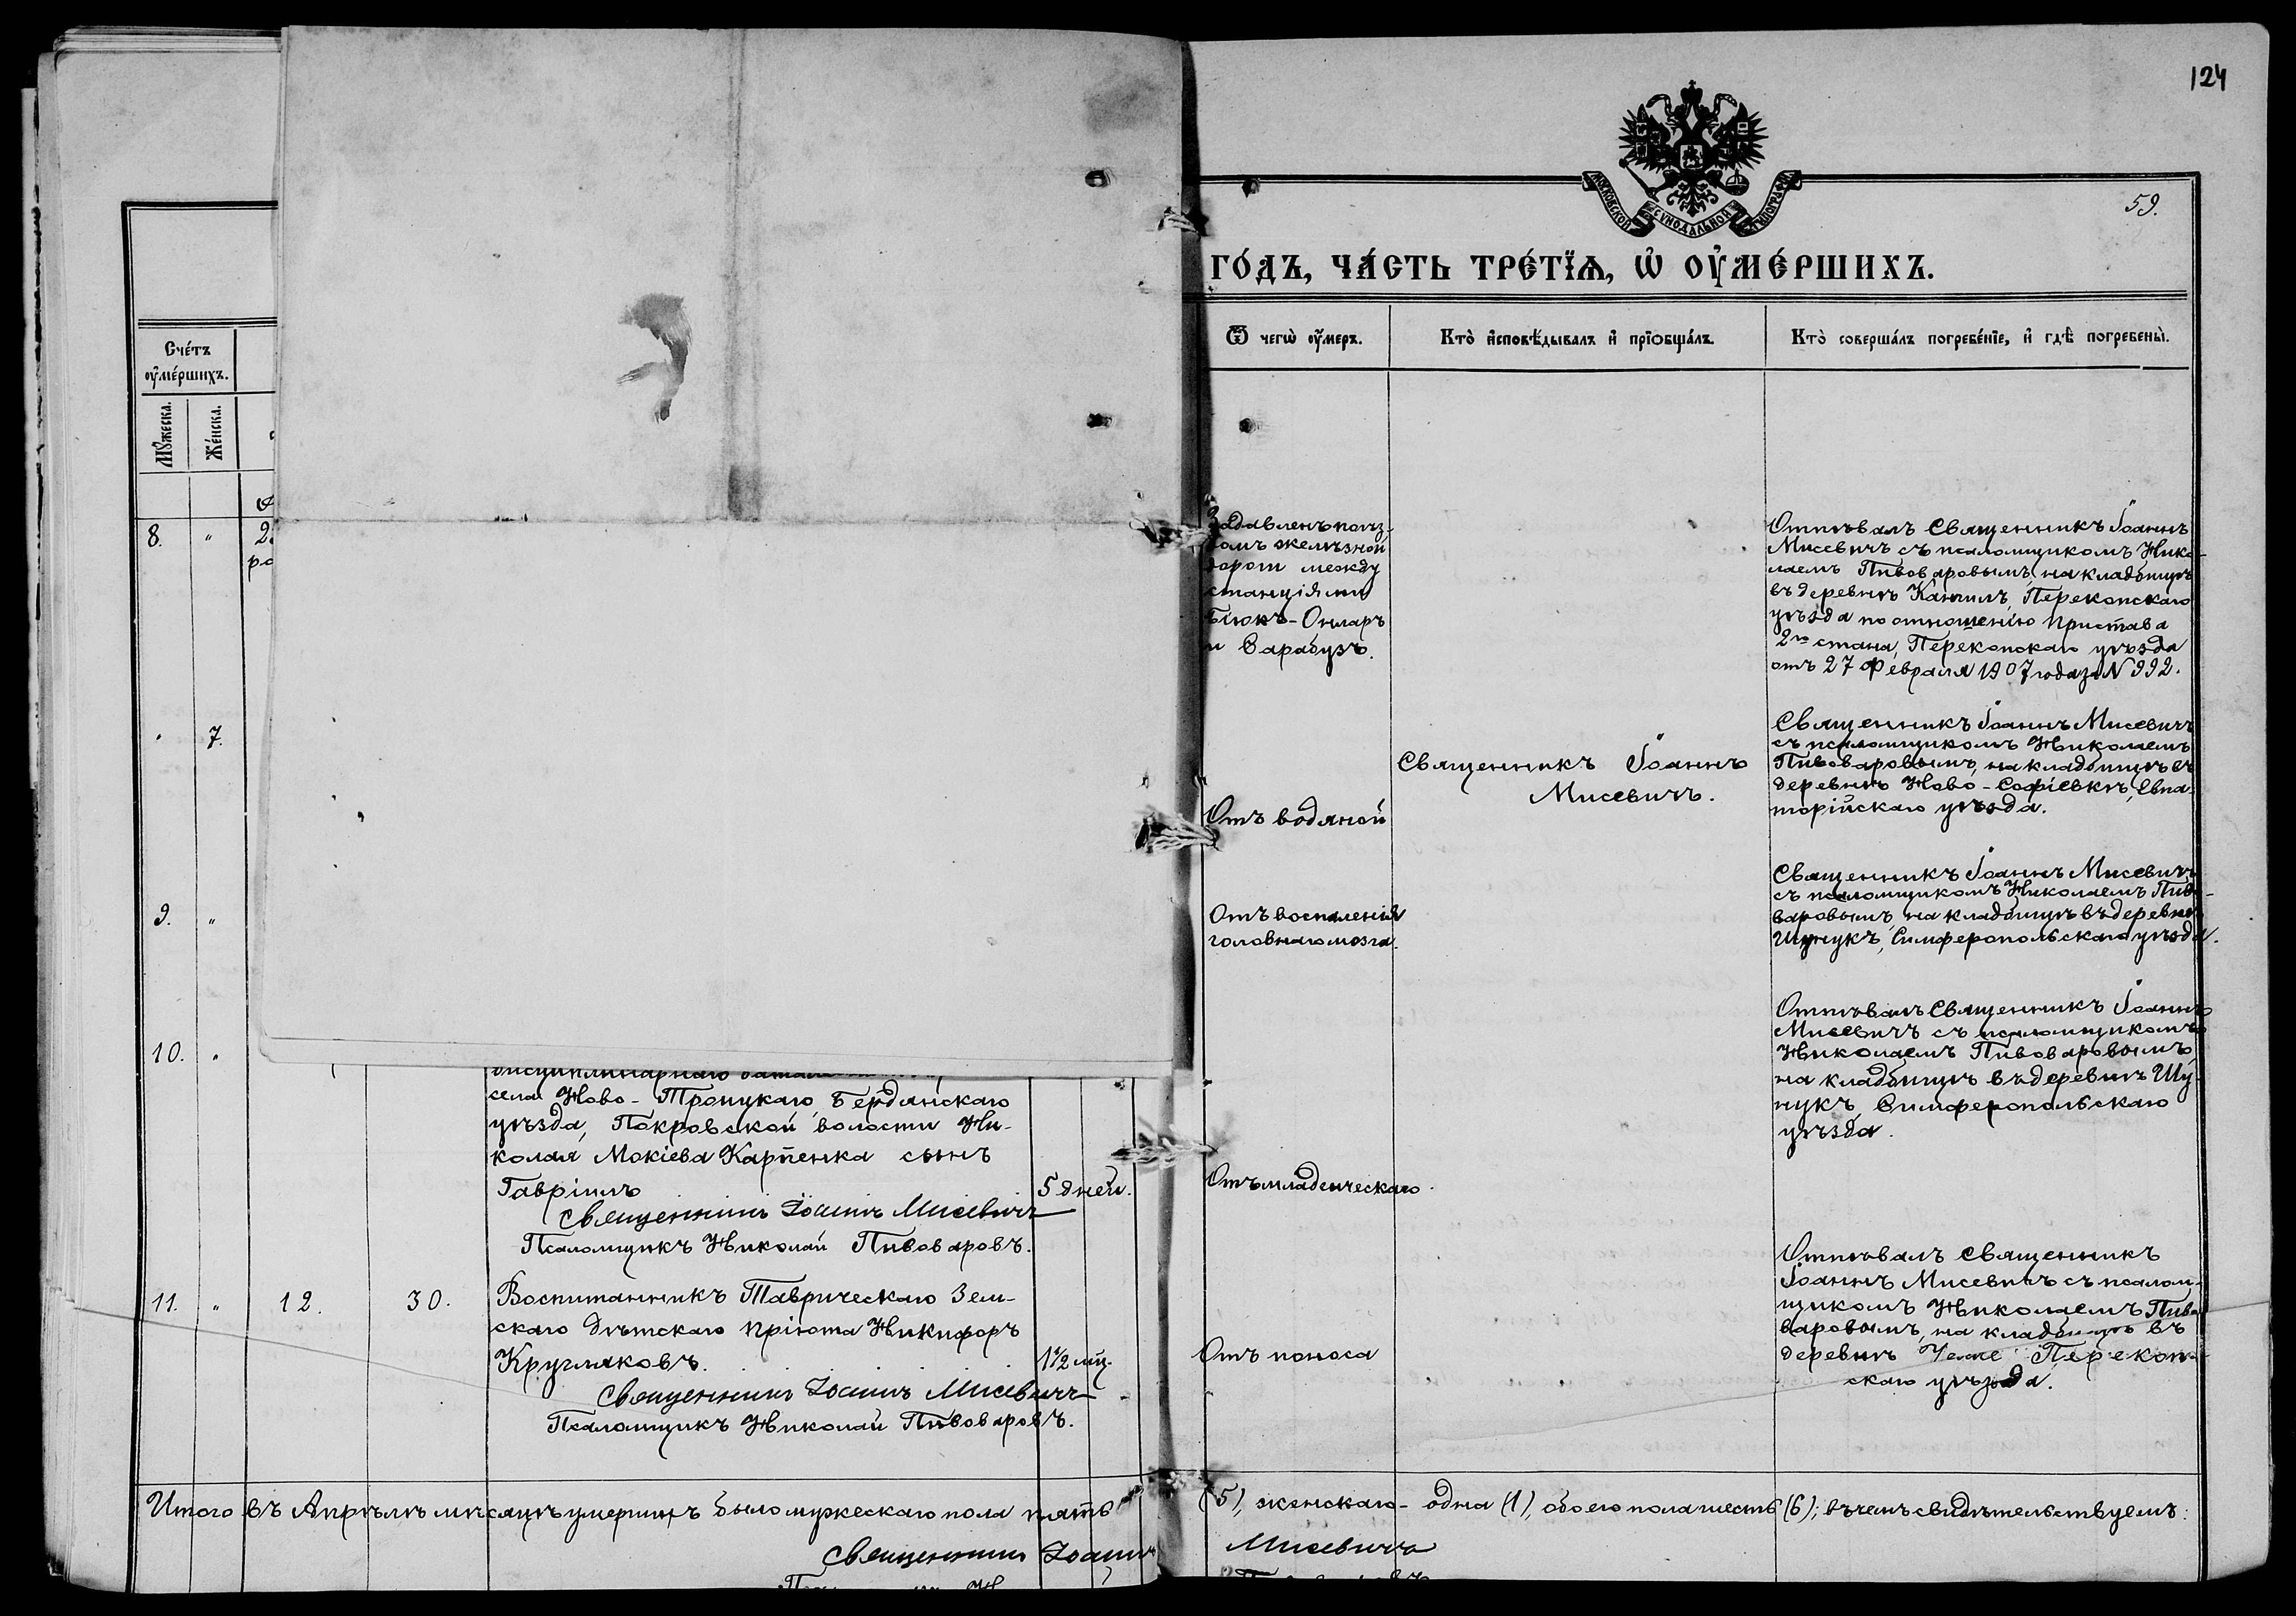 124
МОСКОВСКОЙ СѴНОДАЛЬНОЙ ТИПОГРАФІИ
59.
ГО́ДЪ, ЧА́СТЬ ТРЕ́ТЇѦ, Ѡ҆ ОУ҆МЕ́РШИХЪ.
Сче́тъ
оу҆ме́ршихъ.
Мꙋ́жеска.
Же́нска.
Ѿ чегѡ̀ оу҆́меръ.
Кто̀ и҆сповѣ́дывалъ и҆ прїѻбща́лъ.
Кто̀ соверша́лъ погребе́нїе, и҆ гдѣ̀ погребены̀.
8. "
ро
Задавленъ поѣз-
домъ желѣзной
дороги между
станціями
Біюкъ-Онларъ
и Сарабузъ.
Отпѣвалъ Священникъ Іоаннъ
Мисевичъ съ псаломщикомъ Нико-
лаемъ Пивоваровымъ, на кладбищѣ
въ деревнѣ Кангилъ, Перекопскаго
уѣзда по отношенію Пристава
2го стана, Перекопскаго уѣзда
отъ 27 Февраля 1907 года за N 992.
" 7.
Отъ водяной
Священникъ Іоаннъ
Мисевичъ.
Священникъ Іоаннъ Мисевичъ
съ псаломщикомъ Николаемъ
Пивоваровымъ, на кладбищѣ въ
деревнѣ Ново-Софіевкѣ, Евпа-
торійскаго уѣзда.
9. "
Отъ воспаленія
головнаго мозга.
Священникъ Іоаннъ Мисевичъ
съ псаломщикомъ Николаемъ Пиво-
варовымъ, на кладбищѣ въ деревнѣ
Шунукъ, Симферопольскаго уѣзда.
10. "
дисциплинарнаго
села Ново-Троицкаго, Бердянскаго
уѣзда, Покровской волости Ни-
колая Мокіева Карпенка сынъ
Гавріилъ
5 дней.
Священникъ Іоаннъ Мисевичъ
Псаломщикъ Николай Пивоваровъ.
Отъ младенческаго.
Отпѣвалъ Священникъ Іоаннъ
Мисевичъ съ псаломщикомъ
Николаемъ Пивоваровымъ,
на кладбищѣ въ деревнѣ Шу-
нукъ, Симферопольскаго
уѣзда.
11. " 12. 30.
Воспитанникъ Таврическаго Зем-
скаго дѣтскаго пріюта Никифоръ
Кругляковъ.
1½ мѣс.
Священникъ Іоаннъ Мисевичъ
Псаломщикъ Николай Пивоваровъ.
Отъ поноса
Отпѣвалъ Священникъ
Іоаннъ Мисевичъ съ псалом-
щикомъ Николаемъ Пиво-
варовымъ, на кладбищѣ въ
деревнѣ Перекоп-
скаго уѣзда.
Итого въ Апрѣлѣ мѣсяцѣ умершихъ было мужескаго пола пять (5), женскаго - одна (1), обоего пола шесть (6); въ чемъ свидѣтельствуемъ:
Священникъ Іоаннъ Мисевичъ